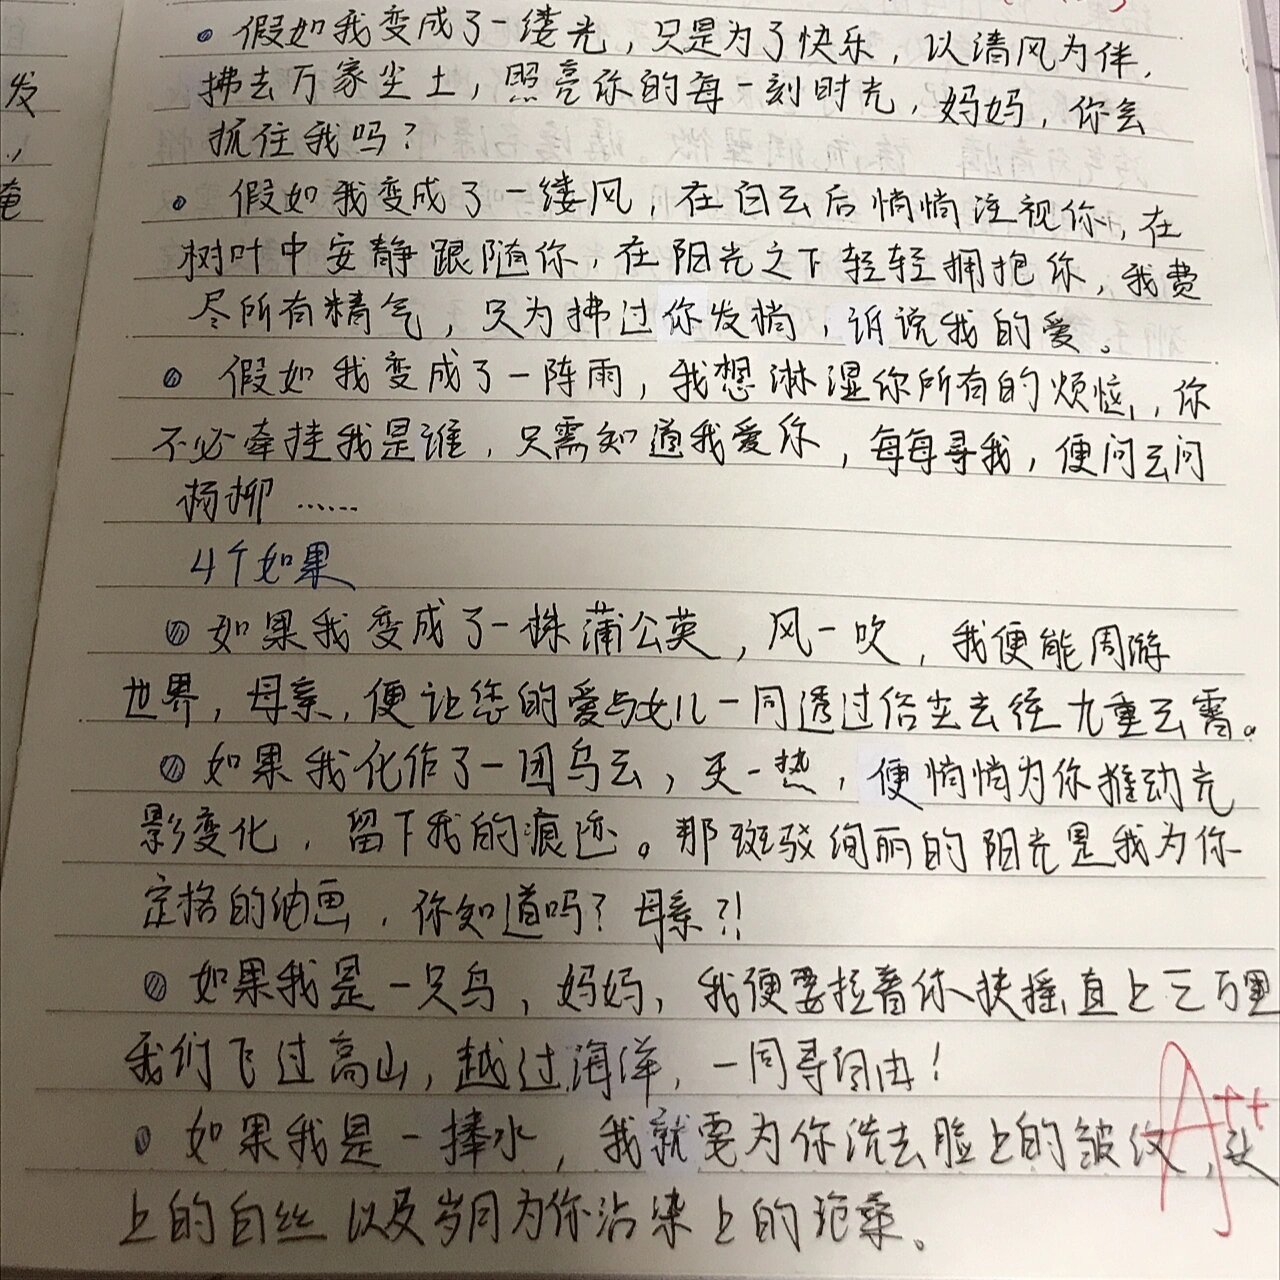 假如我变成了一缕光，只是为了快乐，以清风为伴，
拂去万家尘土，照亮你的每一刻时光，妈妈，你会
抓住我吗？
假如我变成了一缕风，在白云后悄悄注视你，在
树叶中安静跟随你，在阳光之下轻轻拥抱你，我费
尽所有精气，只为拂过你发梢，诉说我的爱。
假如我变成了一阵雨，我想淋湿你所有的烦恼，你
不必牵挂我是谁，只需知道我爱你，每每寻我，便问云问
杨柳……
4个如果
如果我变成了一株蒲公英，风一吹，我便能周游
世界，母亲，便让您的爱与女儿一同透过俗尘去往九重云霄。
如果我化作了一团乌云，天一热，便悄悄为你推动光
影变化，留下我的痕迹。那斑驳绚丽的阳光是我为你
定格的油画，你知道吗？母亲？！
如果我是一只鸟，妈妈，我便要拉着你扶摇直上三万里
我们飞过高山，越过海洋，一同寻自由！
如果我是一捧水，我就要为你洗去脸上的皱纹，头
上的白丝以及岁月为你沾染上的沧桑。
A++
发
掩